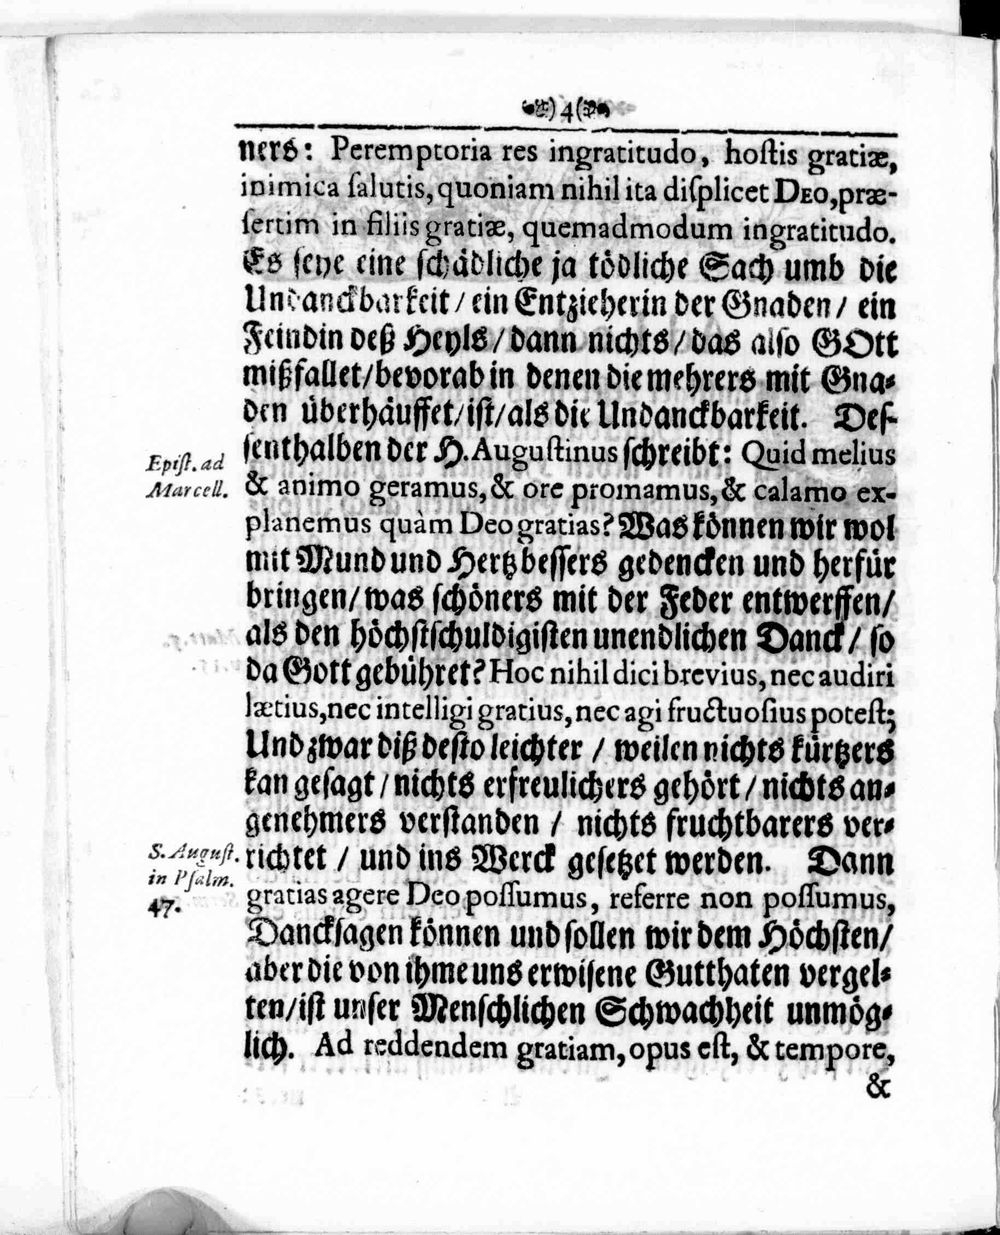 )4(
ners: Peremptoria res ingratitudo, hoſtis gratiæ,
inimica ſalutis, quoniam nihil ita diſplicet DEO, præ-
ſertim in filiis gratiæ, quemadmodum ingratitudo.
Es ſeye eine ſchädliche ja tödliche Sach umb die
Undanckbarkeit / ein Entzieherin der Gnaden / ein
Feindin deß Heyls / dann nichts / das alſo GOtt
mißfallet / bevorab in denen die mehrers mit Gna-
den überhäuffet / iſt / als die Undanckbarkeit. Deſ-
Epiſt. ad
Marcell.
ſenthalben der H. Auguſtinus ſchreibt: Quid melius
& animo geramus, & ore promamus, & calamo ex-
planemus quàm Deo gratias? Was können wir wol
mit Mund und Hertz beſſers gedencken und herfür
bringen / was ſchöners mit der Feder entwerffen /
als den höchſtſchuldigiſten unendlichen Danck / ſo
da Gott gebühret? Hoc nihil dici brevius, nec audiri
lætius, nec intelligi gratius, nec agi fructuoſius poteſt;
Und zwar diß deſto leichter / weilen nichts kürtzers
kan geſagt / nichts erfreulichers gehört / nichts an-
genehmers verſtanden / nichts fruchtbarers ver-
S. Auguſt.
in Pſalm.
47.
richtet / und ins Werck geſetzet werden. Dann
gratias agere Deo poſſumus, referre non poſſumus,
Danckſagen können und ſollen wir dem Höchſten /
aber die von ihme uns erwiſene Gutthaten vergel-
ten / iſt unſer Menſchlichen Schwachheit unmög-
lich. Ad reddendem gratiam, opus eſt, & tempore,
&